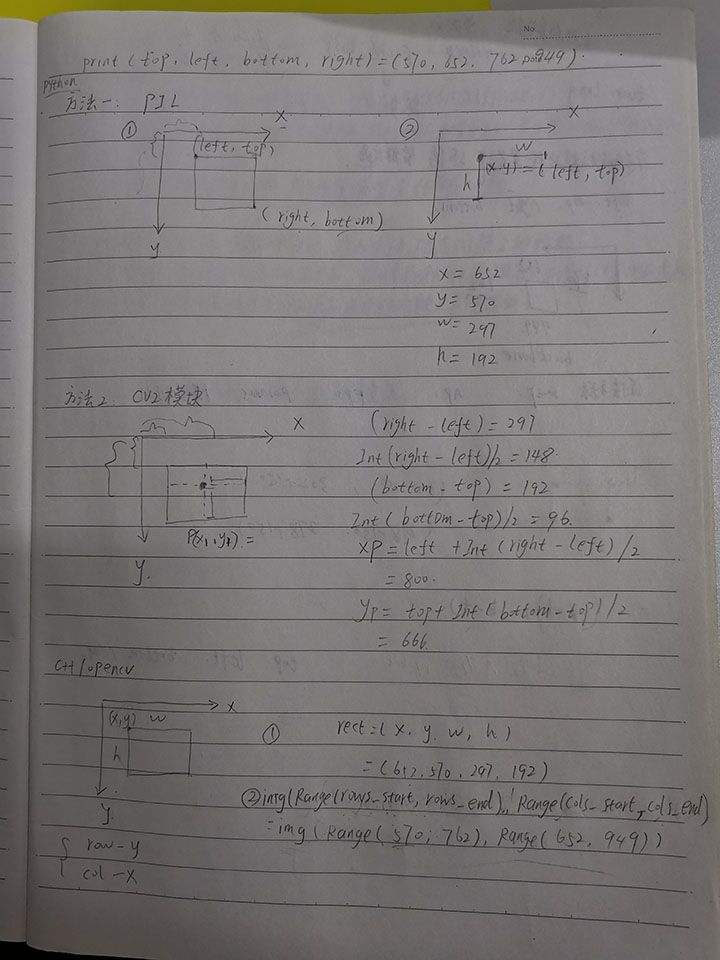 No.
Date
print (top, left, bottom, right) = (570, 652, 762, 949).
Python
方法一: PIL
① X
(left, top)
(right, bottom)
y
② X
w
(x, y) = (left, top)
h
y
x = 652
y = 570
w = 297
h = 192
方法2: CV2模块
X
P(x1, y1) =
y.
(right - left) = 297
Int(right - left)/2 = 148.
(bottom - top) = 192
Int(bottom - top)/2 = 96.
xp = left + Int(right - left)/2
= 800.
yp = top + Int(bottom - top)/2
= 666.
C++/opencv
X
(x,y) w
h
y
① rect = (x, y, w, h)
= (652, 570, 297, 192)
② img(Range(rows_start, rows_end), Range(cols_start, cols_end)
= img(Range(570, 762), Range(652, 949))
{ row - y
col - x